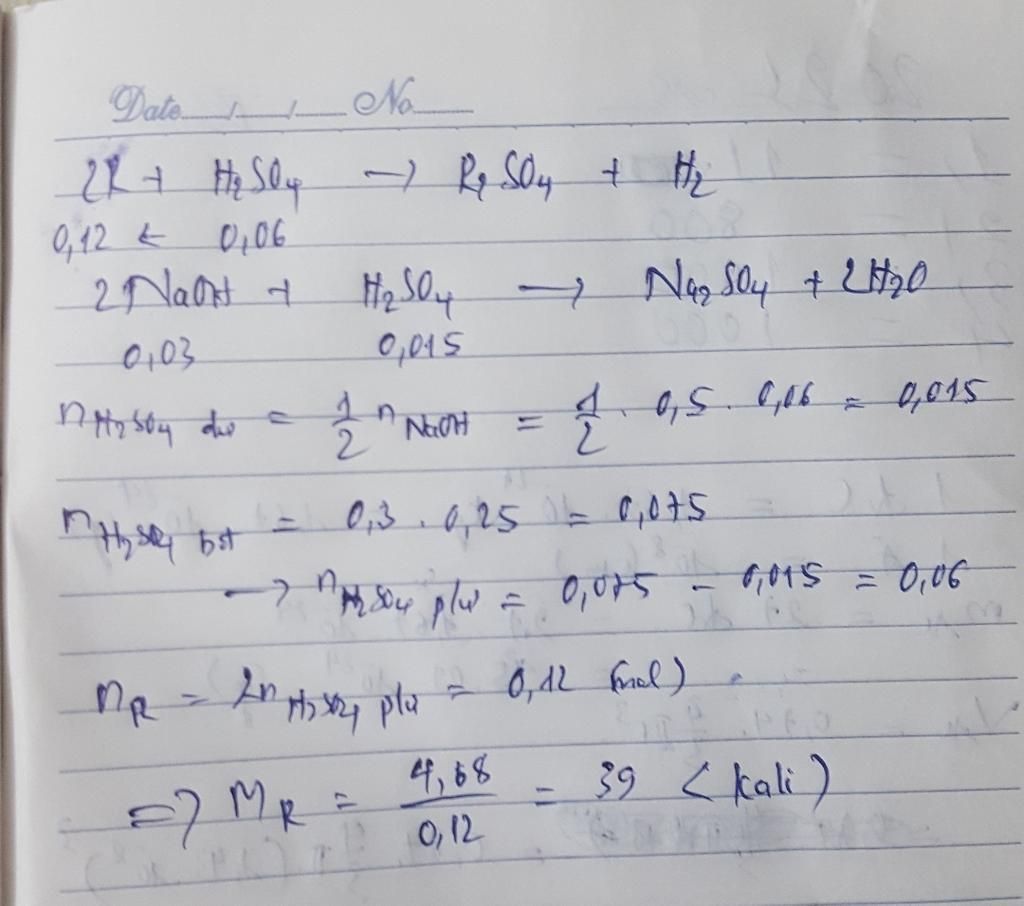 Date / / No
2R + H₂SO₄ → R₂SO₄ + H₂
0,12 ← 0,06
2 NaOH + H₂SO₄ → Na₂SO₄ + 2H₂O
0,03 0,015
n H₂SO₄ dư = 1/2 n NaOH = 1/2 . 0,5 . 0,06 = 0,015
n H₂SO₄ bđ = 0,3 . 0,25 = 0,075
→ n H₂SO₄ p/ư = 0,075 - 0,015 = 0,06
n R = 2n H₂SO₄ p/ư = 0,12 (mol)
=> M R = 4,68/0,12 = 39 (kali)